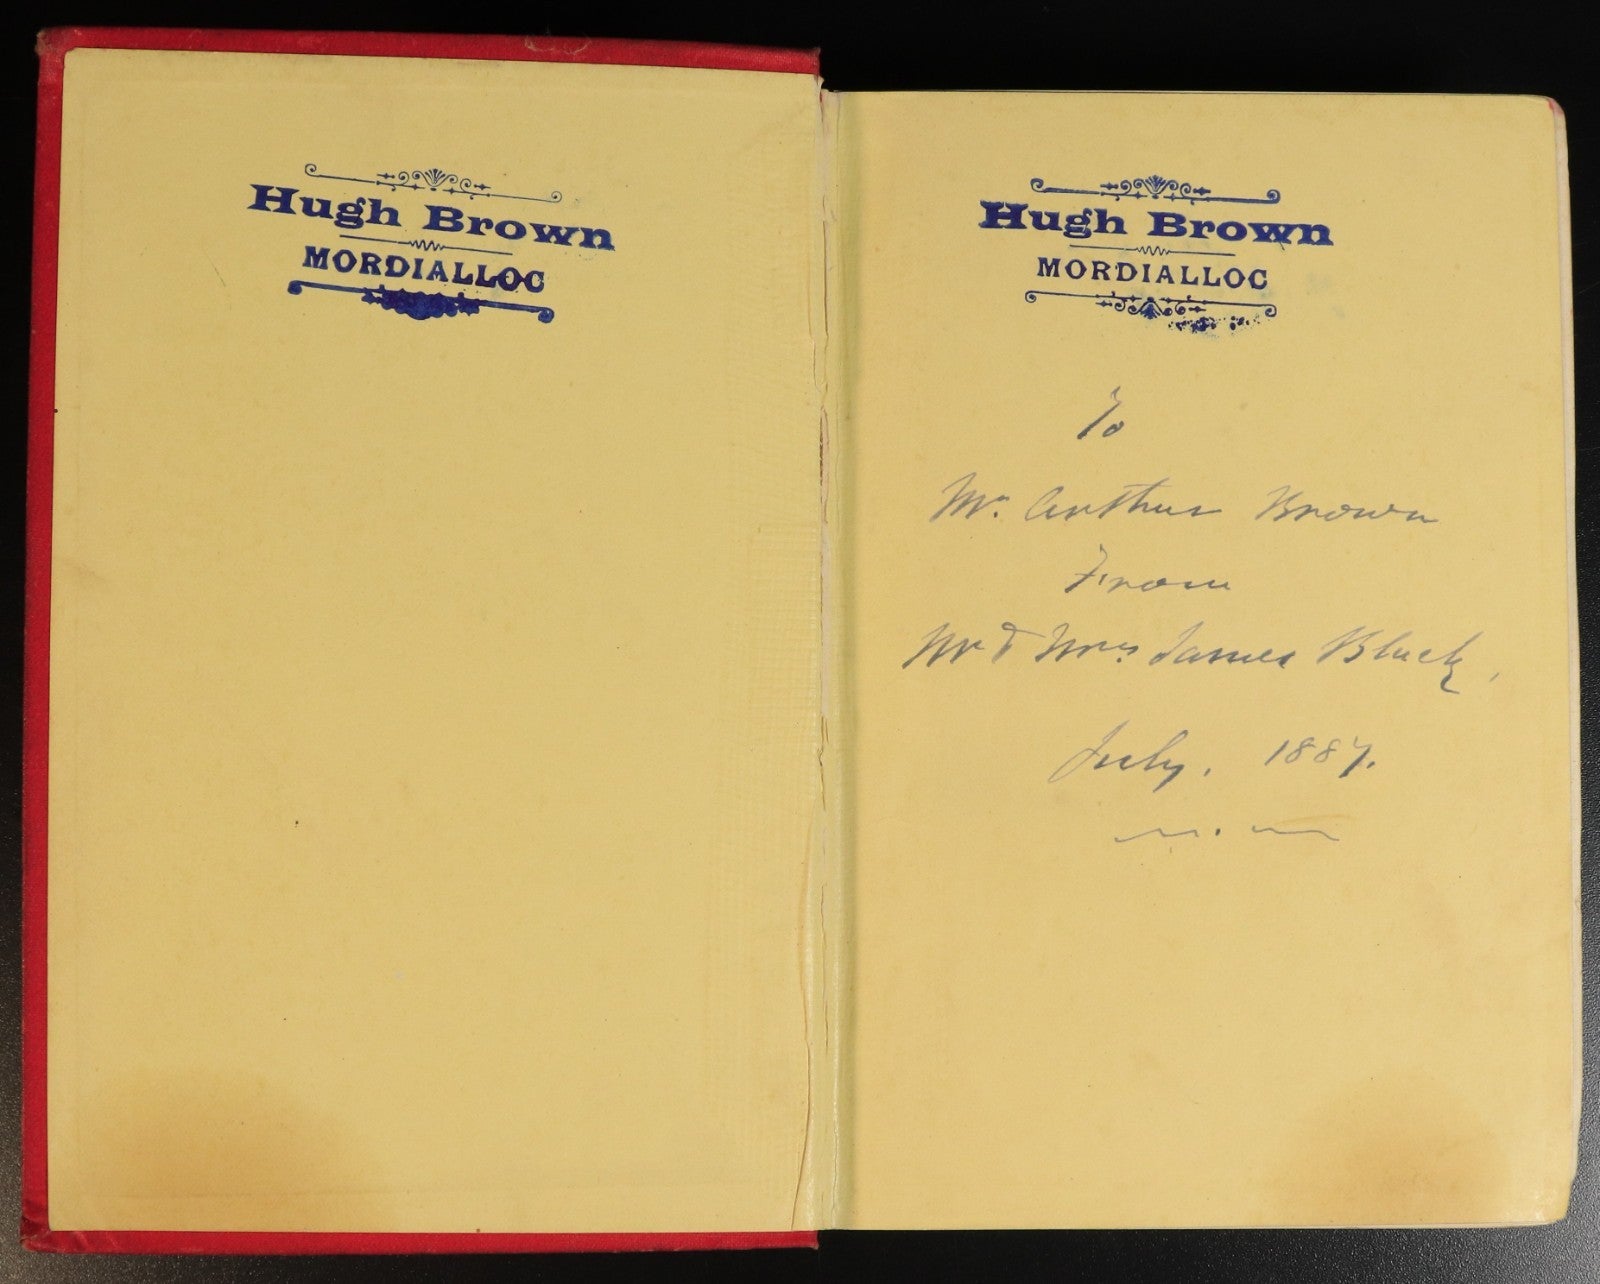 Hugh Brown
MORDIALLOC
Hugh Brown
MORDIALLOC
To
Mr. Arthur Brown
From
Mr & Mrs James Bluck,
July. 1887.